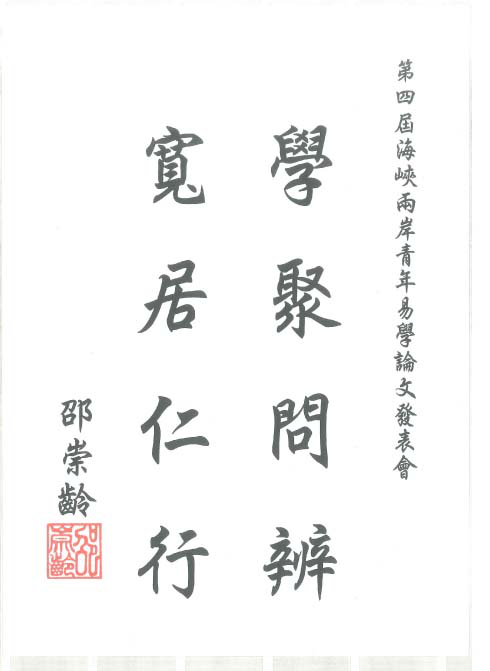 第四屆海峽兩岸青年易學論文發表會
學聚問辨
寬居仁行
邵崇齡
邵崇齡